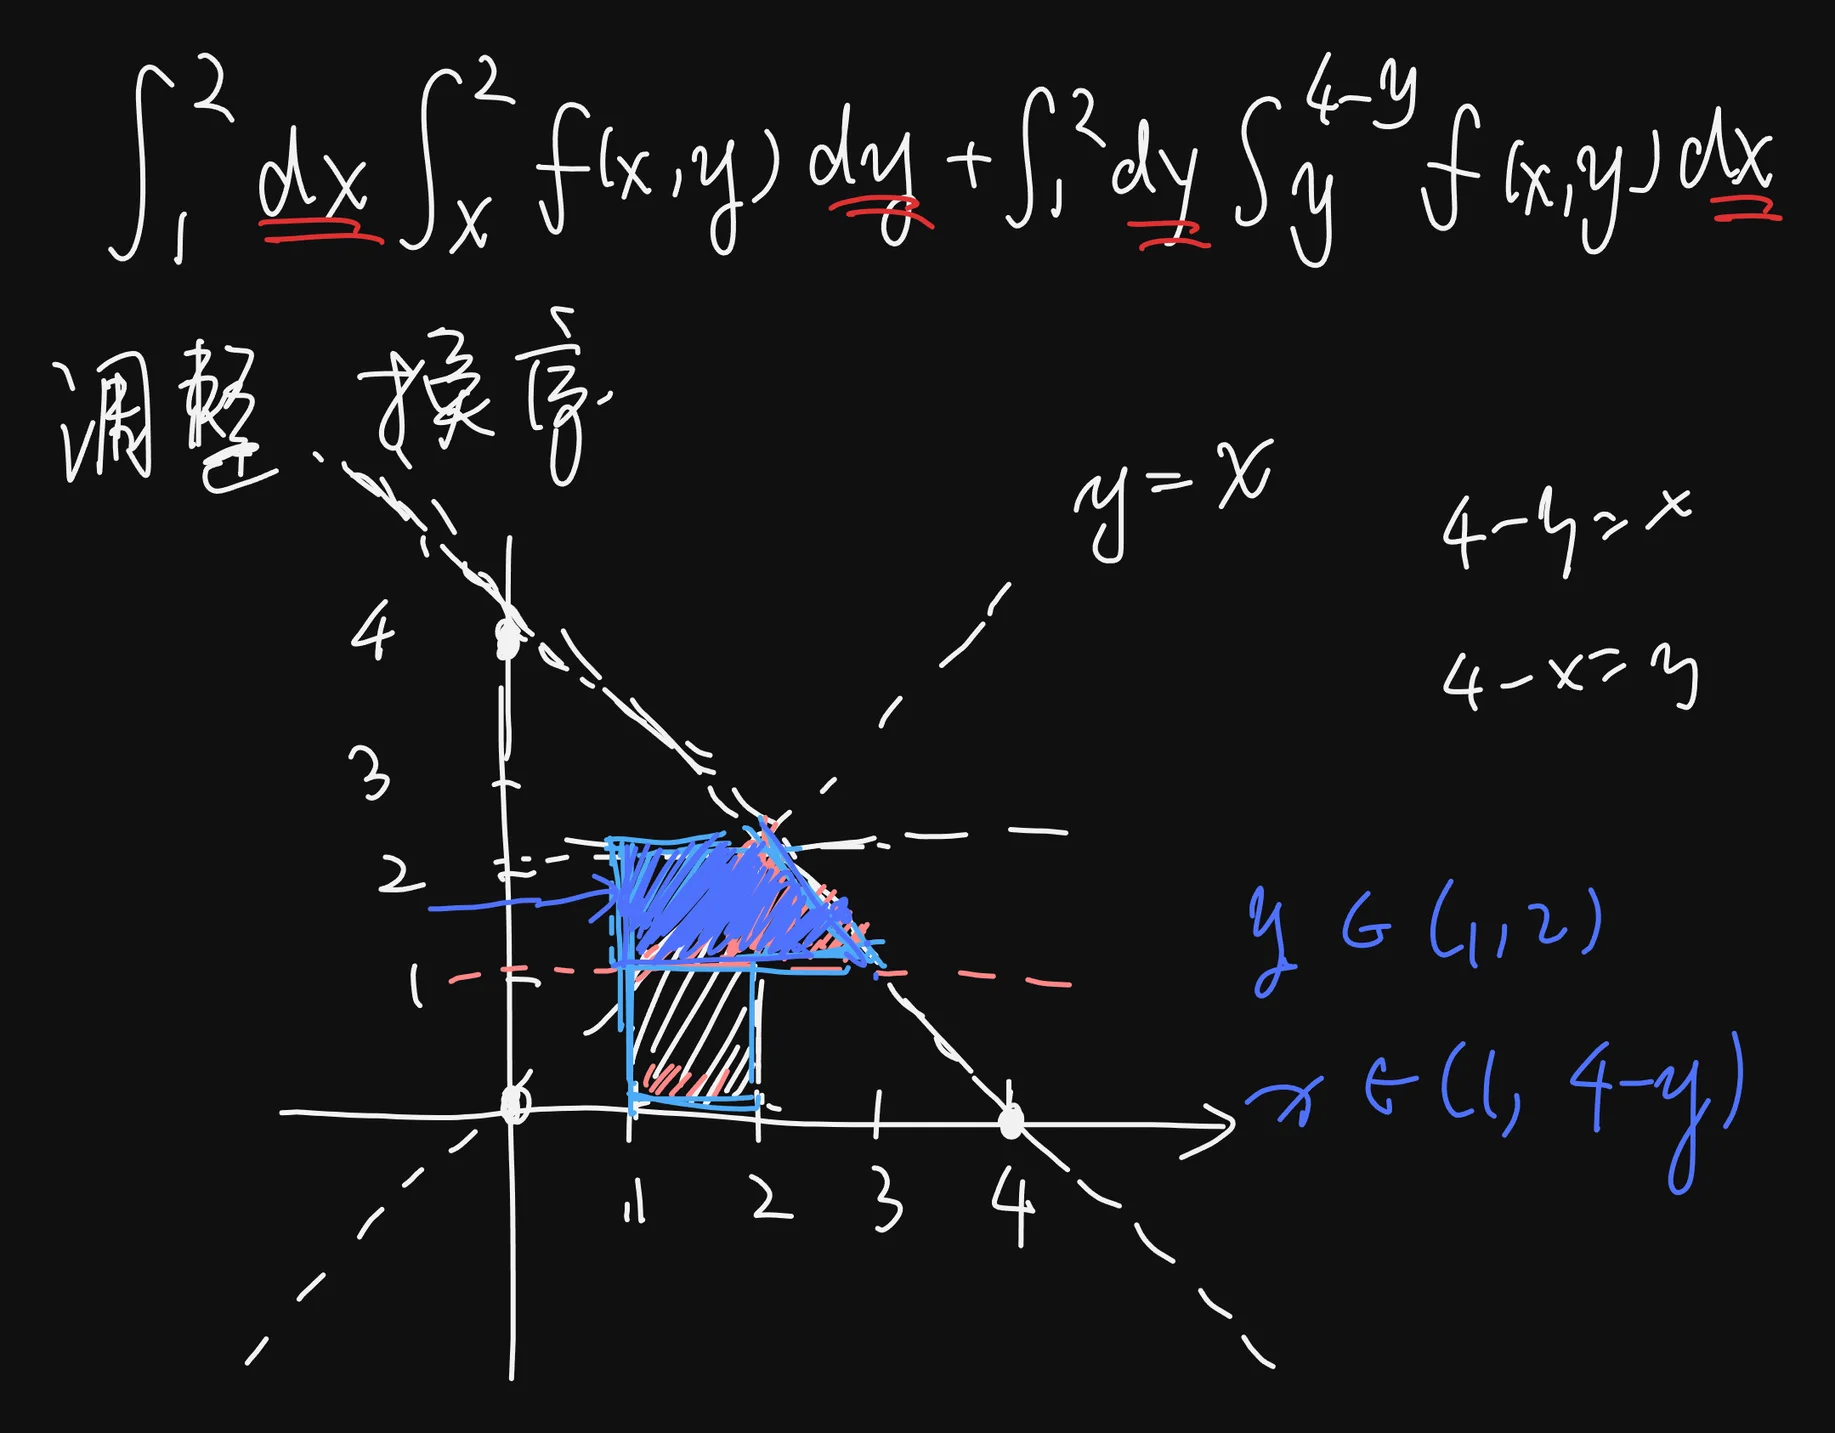 ∫₁² dx ∫ₓ² f(x,y) dy + ∫₁² dy ∫_y^{4-y} f(x,y) dx
调整 换序.
y = x
4-y=x
4-x=y
4
3
2
1
1 2 3 4
y ∈ (1,2)
x ∈ (1, 4-y)